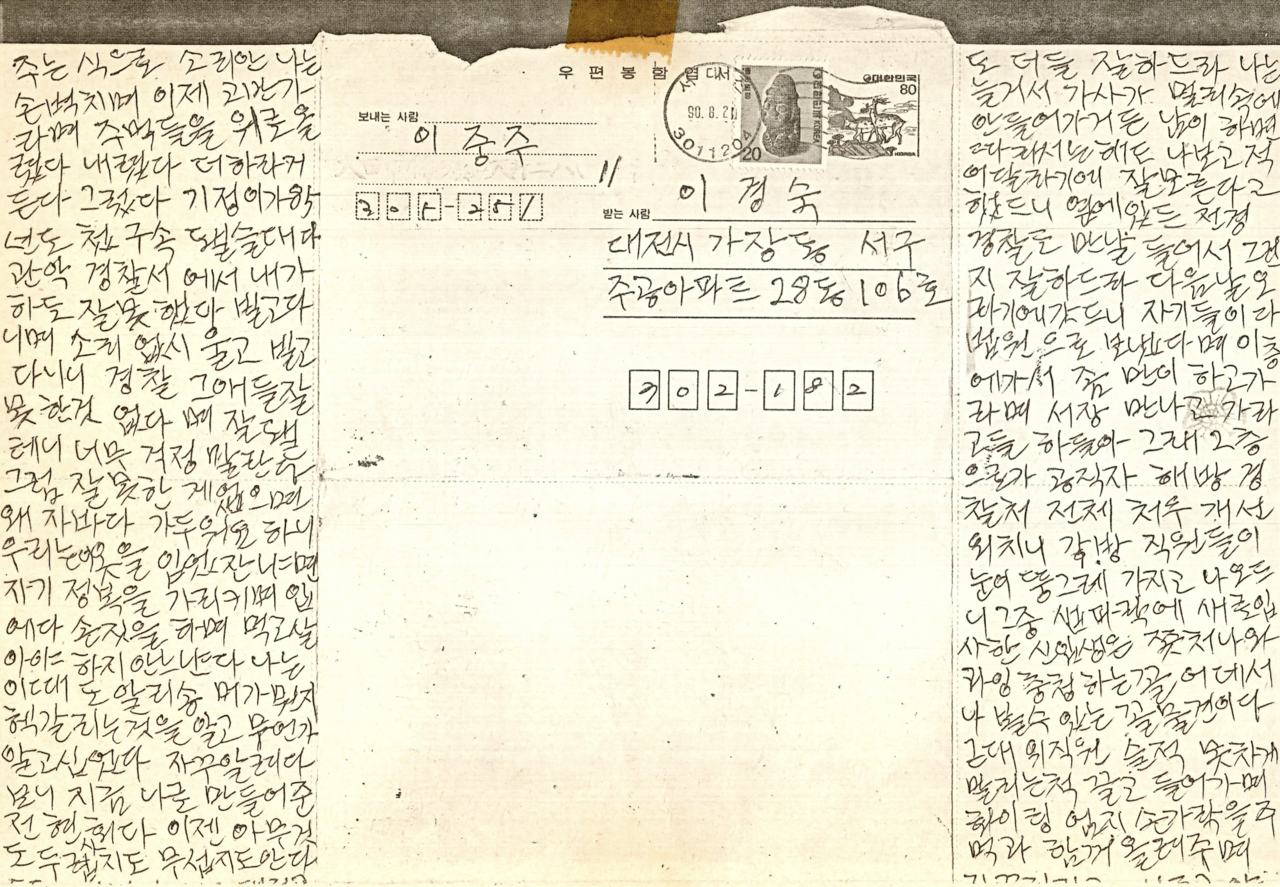 주는 식으로 소리안 나는
손벽치며 이제 고만가
라며 주먹들을 위로올
렸다 내렸다 더하라거
든다 그렀다 기정이가
년도 구속 됐슬대다
관악 경찰서 에서 내가
하도 잘못 했다 빌고다
니며 소리 없시 울고 빌고
다니니 경찰 그애들잘
못 한것 없다 며 잘됄
테니 너무 걱정 말란다
그럼 잘못한 게없으면
왜 자바다 가두워요 하니
우리는이옷을 입었잔냐며
자기 정복을 가리키며 입
에다 손짓을 하며 먹고살
아야 하지 안느냐다 나는
이때 도 알리송 머가뭔지
헥갈리는것을 알고 무언가
알고십었다 자꾸알려다
보니 지금 나를 만들어준
전 현희다 이젠 아무것
도두렵지도 무섭지도안다
우편봉함엽서
보내는 사람
이중주
305-251
90.8.21
3011204
대한민국
20
대한민국
80
KOREA
받는 사람
이경숙
대전시 가장동 서구
주공아파트 28동 106호
302-182
도 더들 잘하드라 나는
늘거서 가사가 머리속에
안들어가거든 남이 하면
따라서는해도 나보고 적
어달라기에 잘모른다고
했드니 옆에있든 전경
경찰도 만날 들어서 그런
지 잘하드라 다음날오
라기에가드니 자기들이다
법원 으로 보냈다며 이층
에가서 좀 만이 하고가
라며 서장 만나고 가라
고들 하들아 그래 2층
으로가 공직자 해방 경
찰처 전체 처우 개선
외치니 각방 직원들이
눈이 뚱그레 가지고 나오드
니 그중 에 새로입
사한 신입생은 쫓처나와
라잉 하는꼴 어데서
나 볼수 있는 꼴물견이다
근대 위직원 슬적 못차게
말리는척 끌고 들어가며
화이팅 엄지 손가락을주
먹과 함께 올려주며